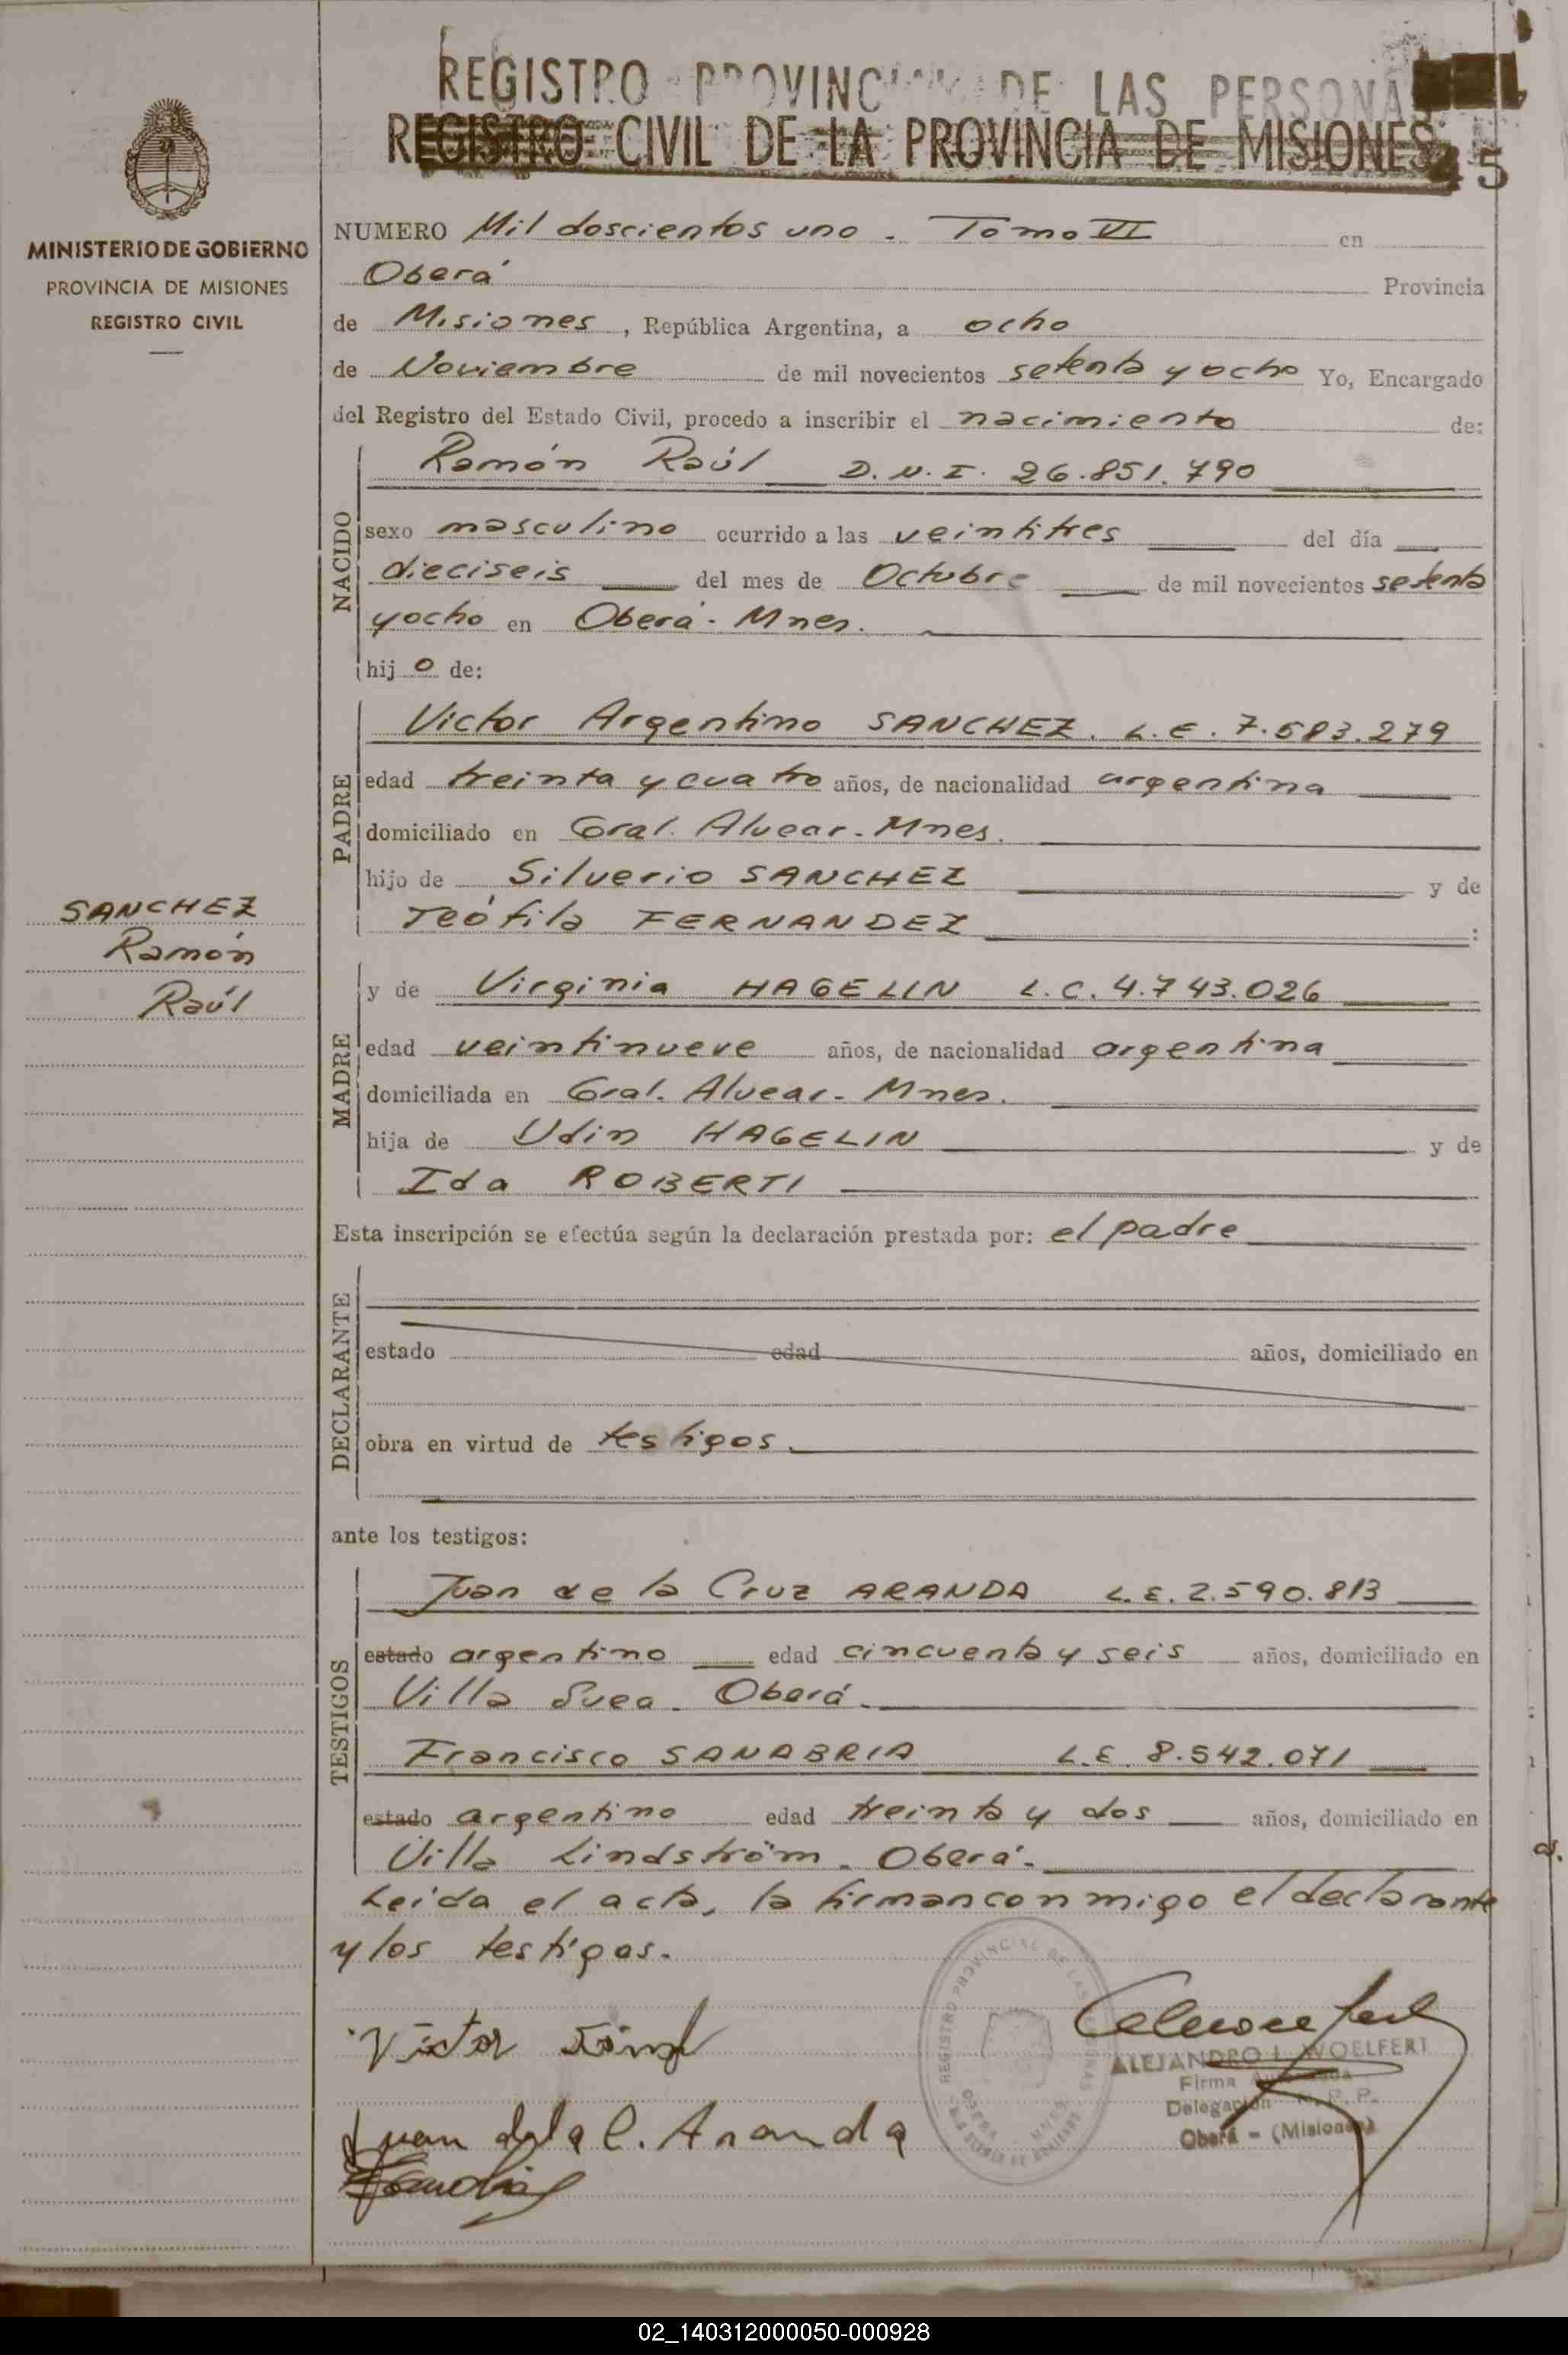 REGISTRO PROVINCIAL DE LAS PERSONA
REGISTRO CIVIL DE LA PROVINCIA DE MISIONES
5
MINISTERIO DE GOBIERNO
PROVINCIA DE MISIONES
REGISTRO CIVIL
NUMERO Mil doscientos uno. Tomo VI en
Oberá Provincia
de Misiones, República Argentina, a ocho
de Noviembre de mil novecientos setenta y ocho Yo, Encargado
del Registro del Estado Civil, procedo a inscribir el nacimiento de:
NACIDO
Ramón Raúl D.N.I. 26.851.790
sexo masculino ocurrido a las veintitres del día
dieciseis del mes de Octubre de mil novecientos setenta
y ocho en Oberá - Mnes.
hij o de:
PADRE
Victor Argentino SANCHEZ. L.E. 7.683.279
edad treinta y cuatro años, de nacionalidad argentina
domiciliado en Gral. Alvear - Mnes.
hijo de Silverio SANCHEZ y de
Teófila FERNANDEZ :
SANCHEZ
Ramón
Raúl
MADRE
y de Virginia HAGELIN L.C. 4.743.026
edad veintinueve años, de nacionalidad argentina
domiciliada en Gral. Alvear - Mnes.
hija de Udin HAGELIN y de
Ida ROBERTI
Esta inscripción se efectúa según la declaración prestada por: el padre
DECLARANTE
estado edad años, domiciliado en
obra en virtud de testigos.
ante los testigos:
TESTIGOS
Juan de la Cruz ARANDA L.E. 2.590.813
estado argentino edad cincuenta y seis años, domiciliado en
Villa Svea. Oberá.
Francisco SANABRIA L.E. 8.542.071
estado argentino edad treinta y dos años, domiciliado en
Villa Lindström. Oberá.
Leída el acta, la firman conmigo el declarante
y los testigos.
Victor
Juan dela C. Aranda
REGISTRO PROVINCIAL DE LAS PERSONAS
ALEJANDRO L. WOELFERT
Firma Autorizada
Delegación R.P.P.
Oberá - (Misiones)
02_140312000050-000928